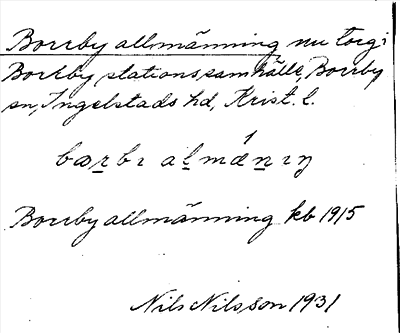 Borrby allmänning nu torg i
Borrby stationssamhälle, Borrby
sn, Ingelstads hd, Krist. l.
bærbı almǽnıŋ
Borrby allmänning kb 1915
Nils Nilsson 1931